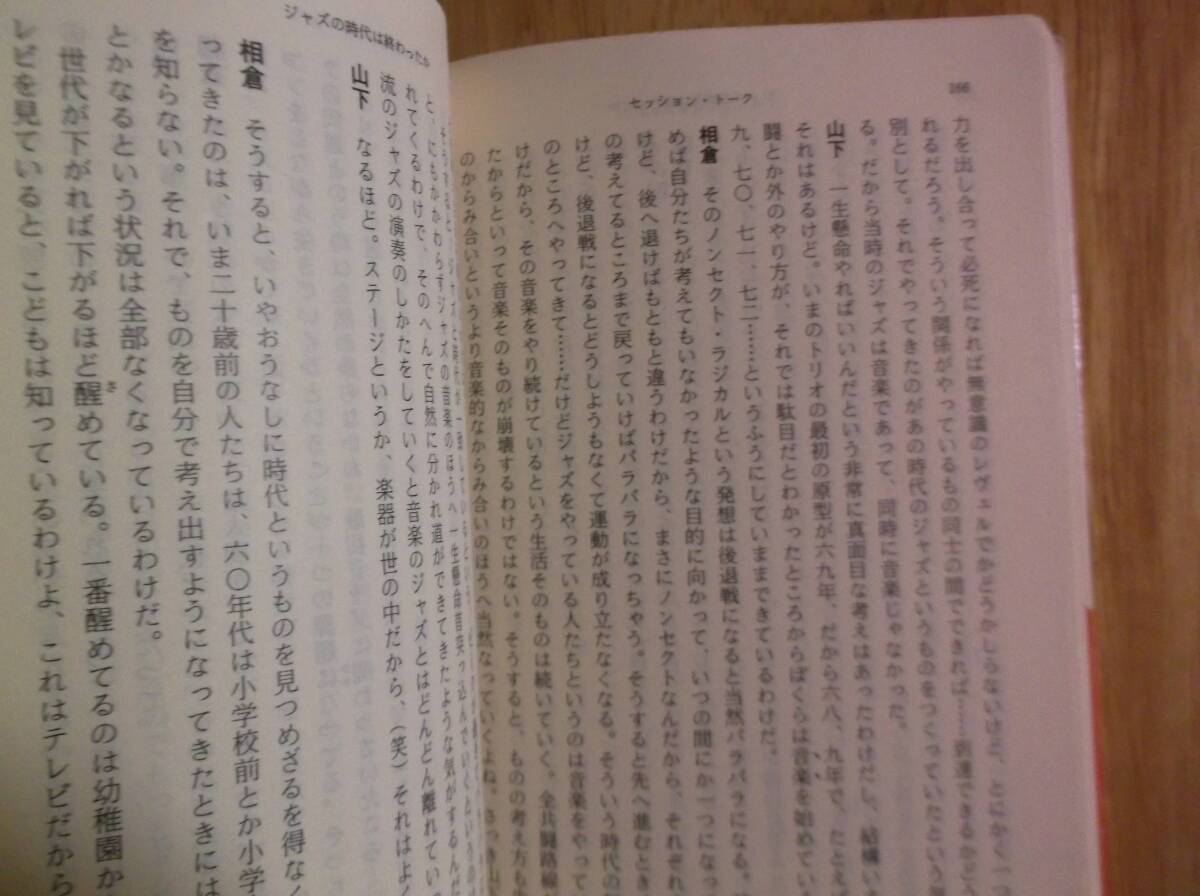 166
セッション・トーク
力を出し合って必死になれば無意識のレヴェルでかどうかしらないけど、とにかく一つ
れるだろう。そういう関係がやっているもの同士の間でできれば……到達できるかどう
別として。それでやってきたのがあの時代のジャズというものをつくっていたという
る。だから当時のジャズは音楽であって、同時に音楽じゃなかった。
山下　一生懸命やればいいんだという非常に真面目な考えはあったわけだし、結構い
それはあるけど。いまのトリオの最初の原型が六九年、だから六八、九年で、たとえば
闘とか外のやり方が、それでは駄目だとわかったところからぼくらは音楽を始めてい
九、七〇、七一、七二……というふうにしていままできているわけだ。
相倉　そのノンセクト・ラジカルという発想は後退戦になると当然バラバラになる。
めば自分たちが考えてもいなかったような目的に向かって、いつの間にか一つになっ
けど、後へ退けばもともと違うわけだから、まさにノンセクトなんだから、それぞれ
の考えてるところまで戻っていけばバラバラになっちゃう。そうすると先へ進むとき
けど、後退戦になるとどうしようもなくて運動が成り立たなくなる。そういう時代の
のところへやってきて……だけどジャズをやっている人たちというのは音楽をやって
けだから、その音楽をやり続けているという生活そのものは続いていく。全共闘路線
たからといって音楽そのものが崩壊するわけではない。そうすると、ものの考え方も
のからみ合いというより音楽的なからみ合いのほうへ当然なっていくよね。さっき山下
ジャズの時代は終わったか
と、にもかかわらずジャズの音楽のほうへ一生懸命首突っ込んでいくというの
れてくるわけで、そのへんで自然に分かれ道ができてきたような気がするんだ
流のジャズの演奏のしかたをしていくと音楽のジャズとはどんどん離れてい
山下　なるほど。ステージというか、楽器が世の中だから、（笑）それはよく
相倉　そうすると、いやおうなしに時代というものを見つめざるを得なく
ってきたのは、いま二十歳前の人たちは、六〇年代は小学校前とか小学
を知らない。それで、ものを自分で考え出すようになってきたときには
とかなるという状況は全部なくなっているわけだ。
世代が下がれば下がるほど醒めている。一番醒めてるのは幼稚園か
レビを見ていると、こどもは知っているわけよ、これはテレビだから